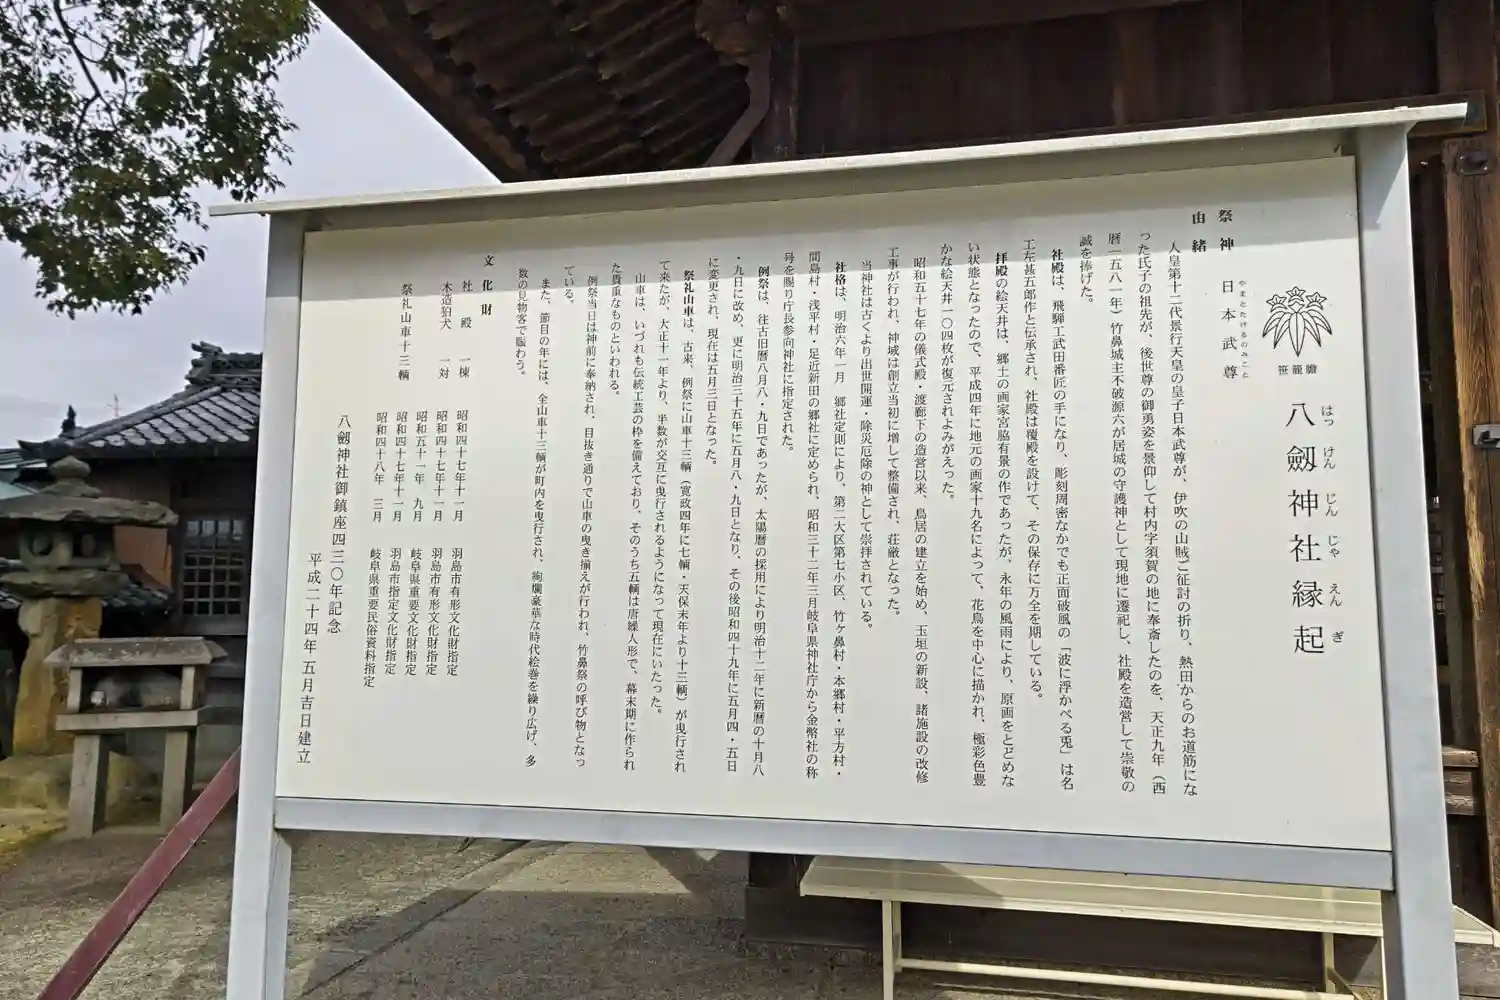 笹龍膽
八劔神社縁起
はっけんじんじゃえんぎ
祭神 日本武尊
やまとたけるのみこと
由緒
人皇第十二代景行天皇の皇子日本武尊が、伊吹の山賊ご征討の折り、熱田からのお道筋にな
った氏子の祖先が、後世尊の御勇姿を景仰して村内字須賀の地に奉斎したのを、天正九年（西
暦一五八一年）竹鼻城主不破源六が居城の守護神として現地に遷祀し、社殿を造営して崇敬の
誠を捧げた。
社殿は、飛騨工武田番匠の手になり、彫刻周密なかでも正面破風の「波に浮かべる兎」は名
工左甚五郎作と伝承され、社殿は覆殿を設けて、その保存に万全を期している。
拝殿の絵天井は、郷土の画家宮脇有景の作であったが、永年の風雨により、原画をとどめな
い状態となったので、平成四年に地元の画家十九名によって、花鳥を中心に描かれ、極彩色豊
かな絵天井一〇四枚が復元されよみがえった。
昭和五十七年の儀式殿・渡廊下の造営以来、鳥居の建立を始め、玉垣の新設、諸施設の改修
工事が行われ、神域は創立当初に増して整備され、荘厳となった。
当神社は古くより出世開運・除災厄除の神として崇拝されている。
社格は、明治六年一月 郷社定則により、第二大区第七小区、竹ヶ鼻村・本郷村・平方村・
間島村・浅平村・足近新田の郷社に定められ、昭和三十二年三月岐阜県神社庁から金幣社の称
号を賜り庁長参向神社に指定された。
例祭は、往古旧暦八月八・九日であったが、太陽暦の採用により明治十二年に新暦の十月八
・九日に改め、更に明治三十五年に五月八・九日となり、その後昭和四十九年に五月四・五日
に変更され、現在は五月三日となった。
祭礼山車は、古来、例祭に山車十三輌（寛政四年に七輌・天保末年より十三輌）が曳行され
て来たが、大正十一年より、半数が交互に曳行されるようになって現在にいたった。
山車は、いづれも伝統工芸の枠を備えており、そのうち五輌は唐繰人形で、幕末期に作られ
た貴重なものといわれる。
例祭当日は神前に奉納され、目抜き通りで山車の曳き揃えが行われ、竹鼻祭の呼び物となっ
ている。
また、節目の年には、全山車十三輌が町内を曳行され、絢爛豪華な時代絵巻を繰り広げ、多
数の見物客で賑わう。
文化財
社殿 一棟 昭和四十七年十一月 羽島市有形文化財指定
木造狛犬 一対 昭和四十七年十一月 羽島市有形文化財指定
昭和五十一年 九月 岐阜県重要文化財指定
祭礼山車十三輌 昭和四十七年十一月 羽島市指定文化財指定
昭和四十八年 三月 岐阜県重要民俗資料指定
八劔神社御鎮座四三〇年記念
平成二十四年五月吉日建立